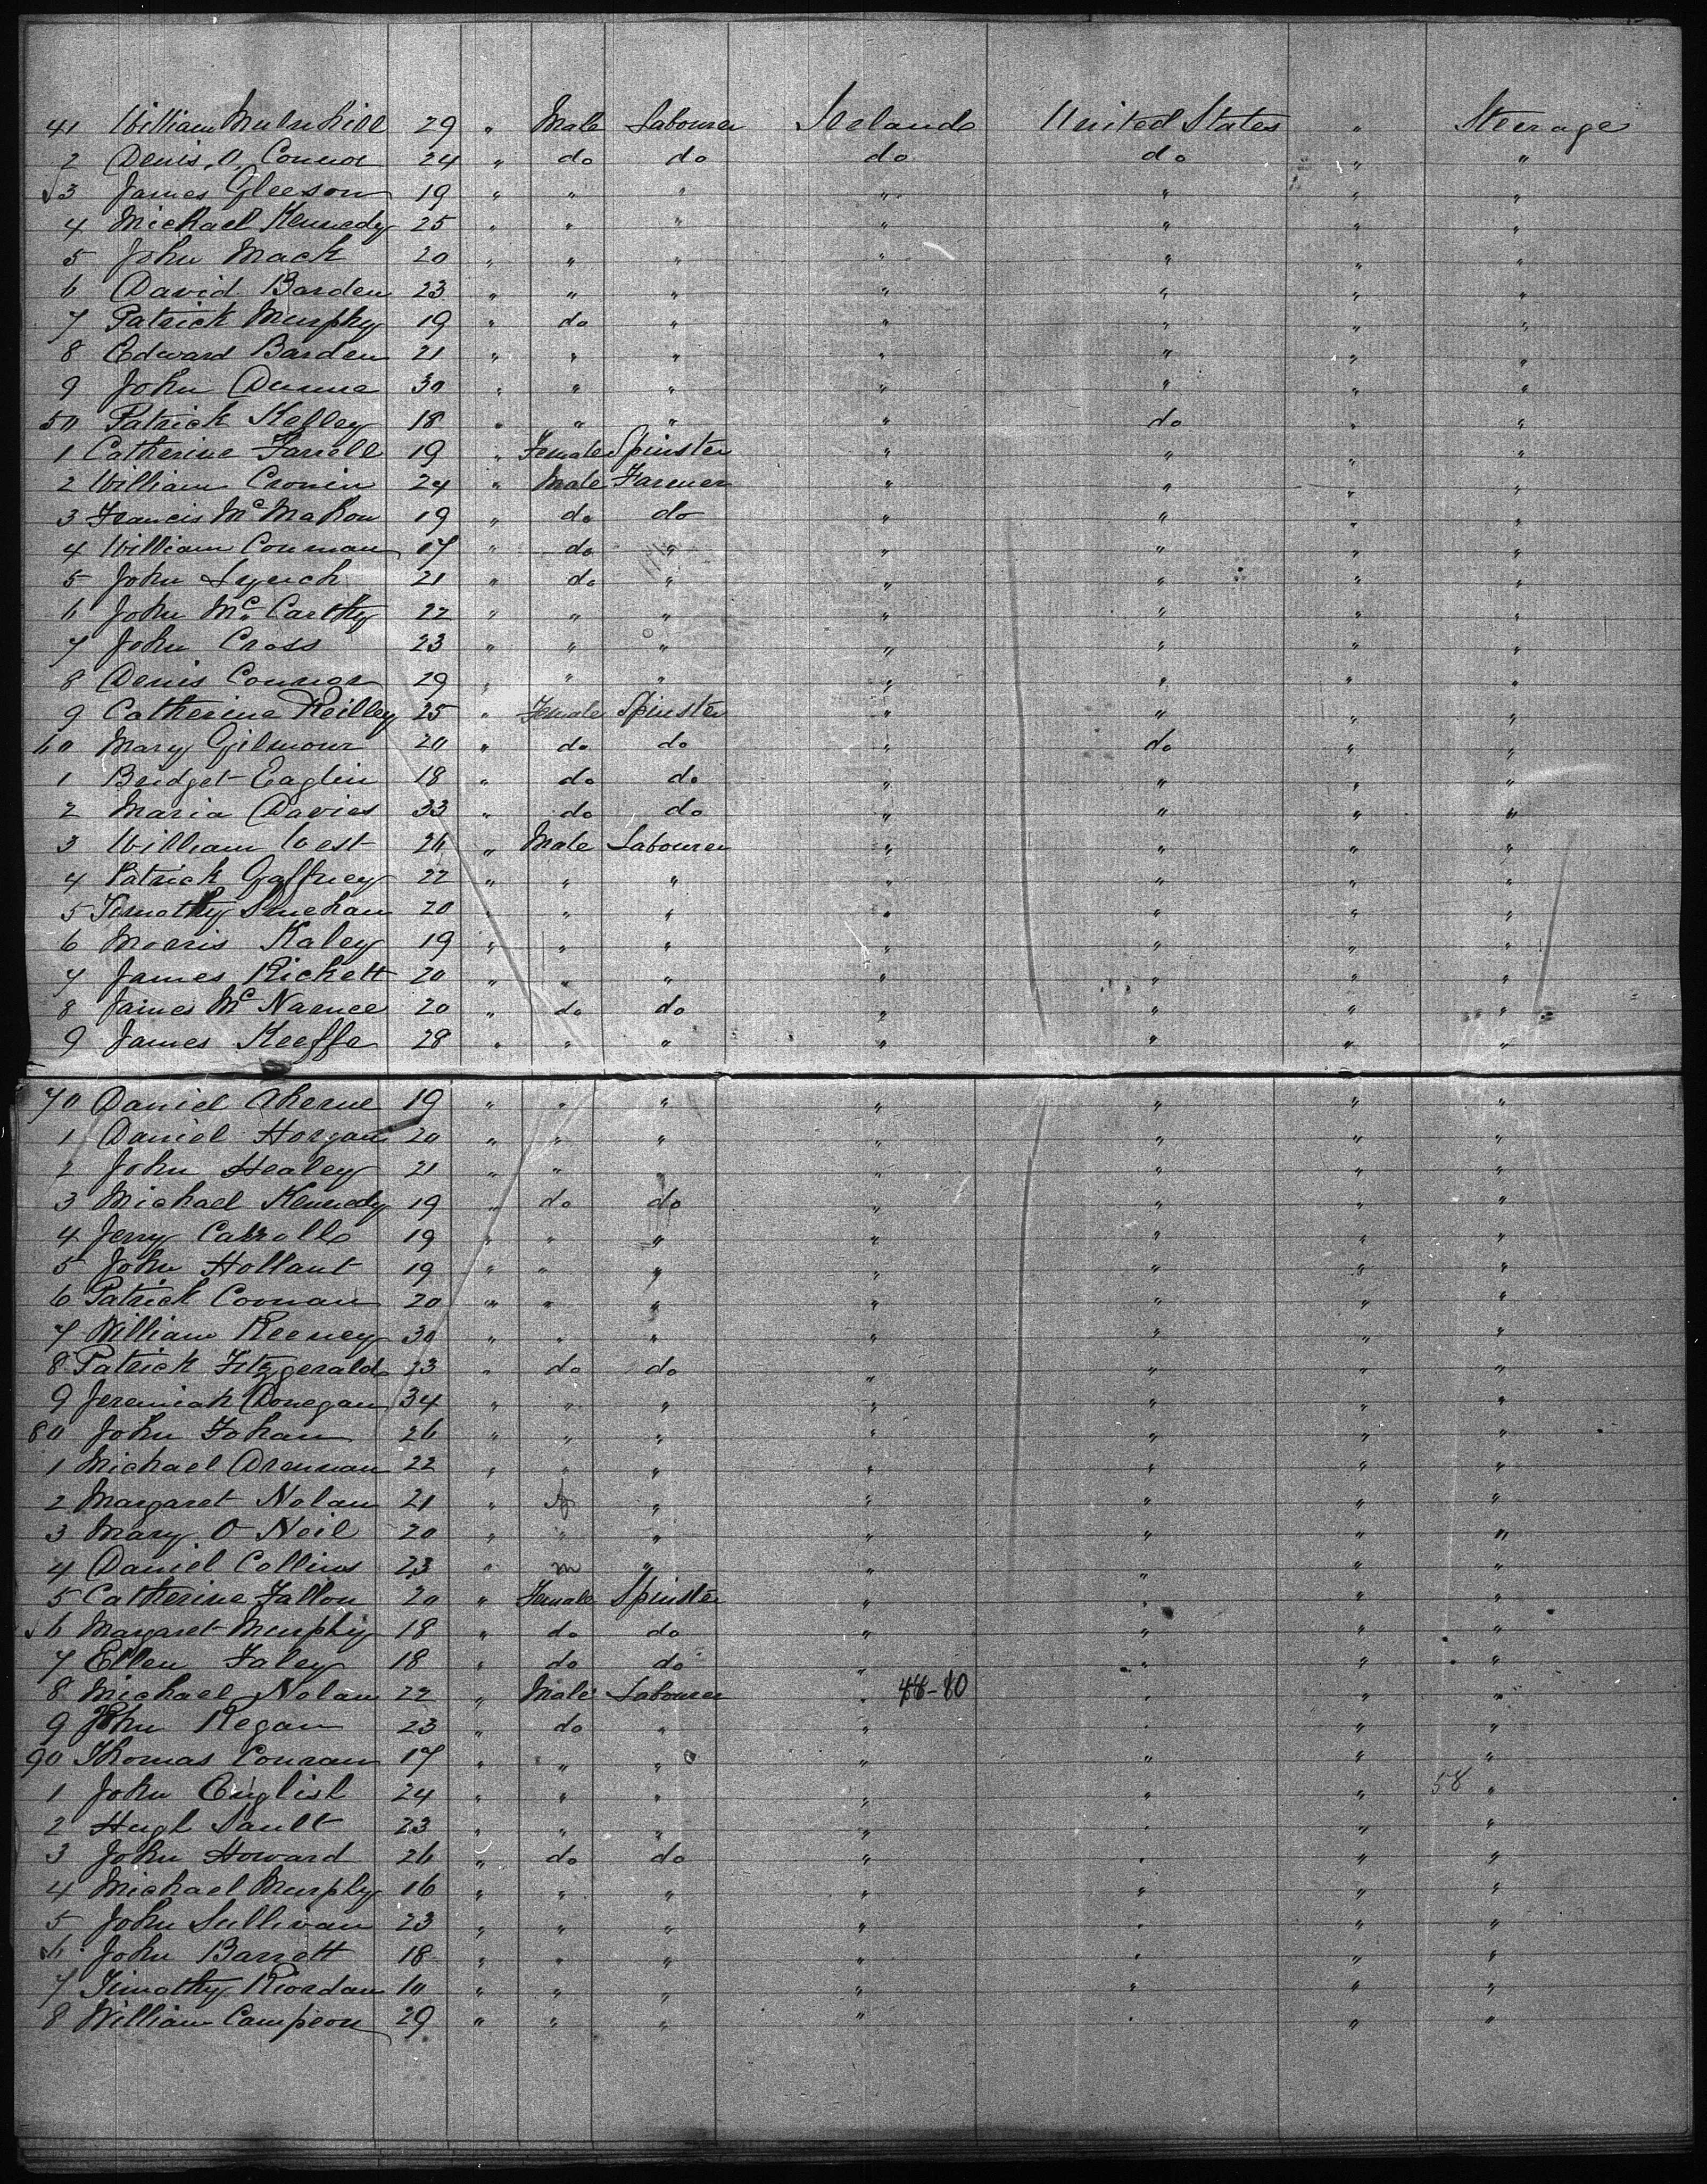 41 William Mulnhill 29 " Male Labourer Ireland United States " Steerage
2 Denis O Connor 24 " do do do do " "
3 James Gleeson 19 " " " " " " "
4 Michael Kennedy 25 " " " " " " "
5 John Mack 20 " " " " " " "
6 David Barden 23 " " " " " " "
7 Patrick Murphy 19 " do " " " " "
8 Edward Barden 21 " " " " " " "
9 John Dunne 30 " " " " " " "
50 Patrick Kelley 18 " " " " do " "
1 Catherine Farrell 19 " Female Spinster " " " "
2 William Cronin 24 " Male Farmer " " " "
3 Francis McMahon 19 " do do " " " "
4 William Conman 17 " do " " " " "
5 John Lynch 21 " do " " " " "
6 John McCarthy 22 " " " " " " "
7 John Cross 23 " " " " " " "
8 Denis Connor 29 " " " " " " "
9 Catherine Reilley 25 " Female Spinster " " " "
60 Mary Gilmour 20 " do do " do " "
1 Bridget Eaglin 18 " do do " " " "
2 Maria Davies 33 " do do " " " "
3 William West 26 " Male Labourer " " " "
4 Patrick Gaffney 22 " " " " " " "
5 Timothy Sheehan 20 " " " " " " "
6 Morris Kaley 19 " " " " " " "
7 James Rickett 20 " " " " " " "
8 James Mc Naence 20 " do do " " " "
9 James Keeffe 28 " " " " " " "
70 Daniel Aherne 19 " " " " " " "
1 Daniel Horgan 20 " " " " " " "
2 John Healey 21 " " " " " "
3 Michael Kennedy 19 " do do " " " "
4 Jerry Carroll 19 " " " " " " "
5 John Hollant 19 " " " " " " "
6 Patrick Coonan 20 " " " " " " "
7 William Keeney 30 " " " " " " "
8 Patrick Fitzgerald 23 " do do " " " "
9 Jeremiah Donegan 34 " " " " " " "
80 John Fohan 26 " " " " " " "
1 Michael Drennan 22 " " " " " " "
2 Margaret Nolan 21 " f " " " " "
3 Mary O Neil 20 " " " " " " "
4 Daniel Collins 23 " m " " " " "
5 Catherine Fallon 20 " Female Spinster " " " "
6 Margaret Murphy 18 " do do " " " "
7 Ellen Faley 18 " do do " " " "
8 Michael Nolan 22 " Male Labourer " " " "
9 John Regan 23 " do " " " " "
90 Thomas Conran 17 " " " " " " "
1 John English 24 " " " " " " 58 "
2 Hugh Sault 23 " " " " " " "
3 John Howard 26 " do do " " " "
4 Michael Murphy 16 " " " " " " "
5 John Sullivan 23 " " " " " " "
6 John Barrett 18 " " " " " " "
7 Timothy Riordan 10 " " " " " " "
8 William Campion 29 " " " " " " "